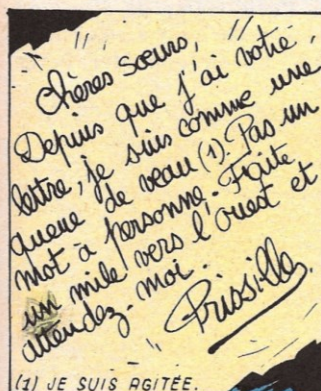 Chères sœurs,
Depuis que j'ai votre
lettre, je suis comme une
queue de veau (1). Pas un
mot à personne. Faite
un mile vers l'ouest et
attendez-moi.
Prissille
(1) JE SUIS AGITÉE.